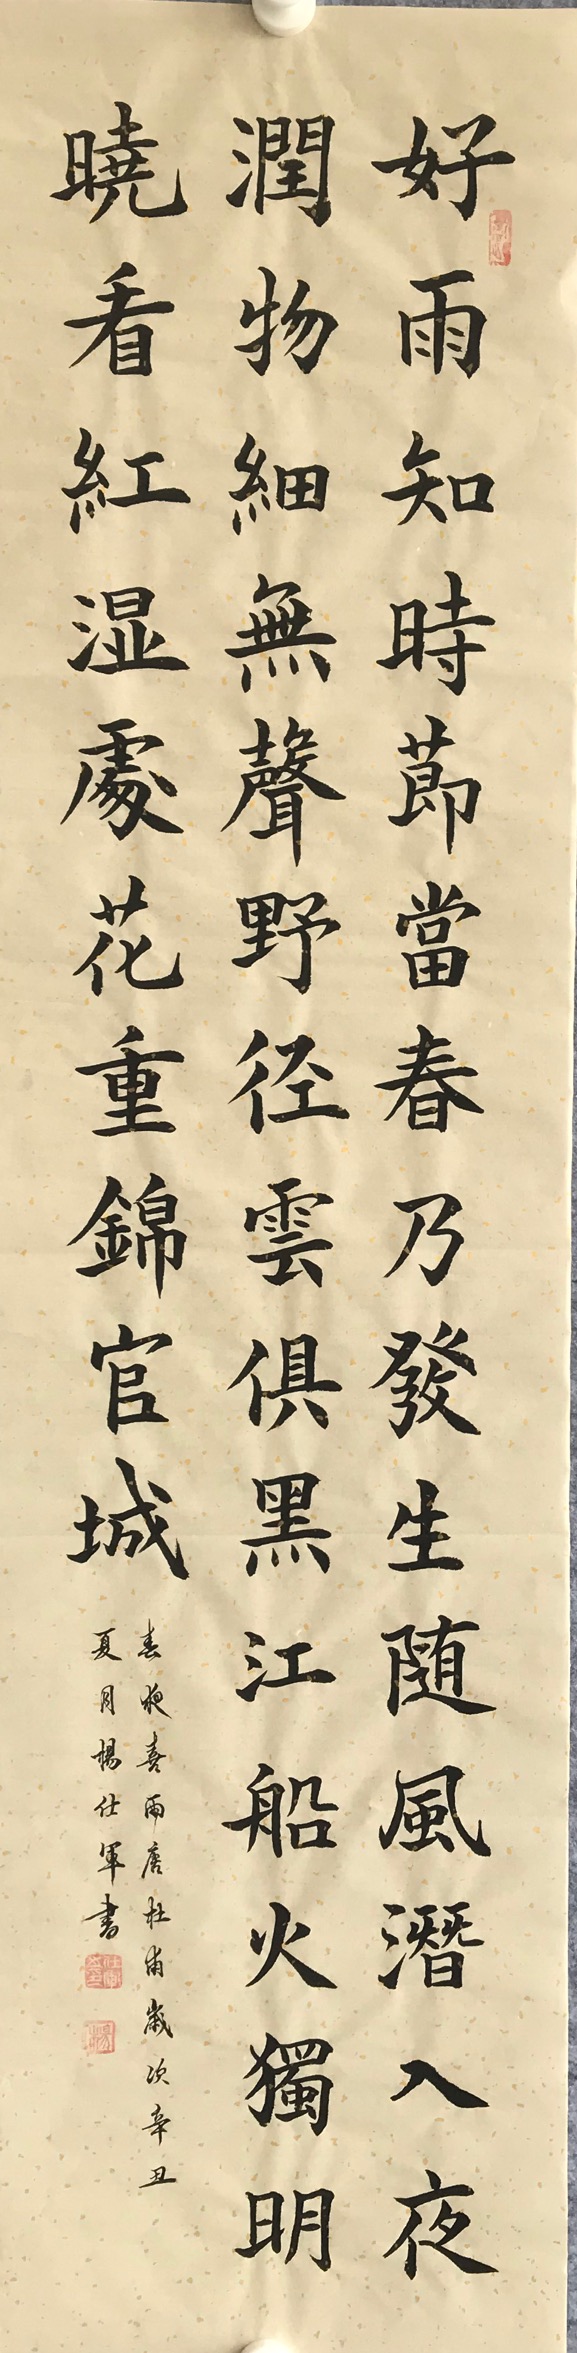 好雨知時莭當春乃發生随風潛入夜
潤物細無聲野径雲俱黑江船火獨明
曉看紅湿處花重錦官城
春夜喜雨唐杜甫歲次辛丑
夏月楊仕軍書